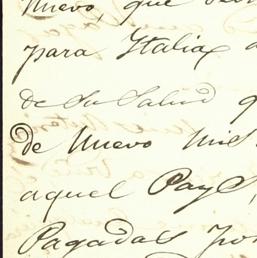 Nuevo, que
para Italia
de su Salud q
de Nuevo mis
aquel Pays,
Pagadas por